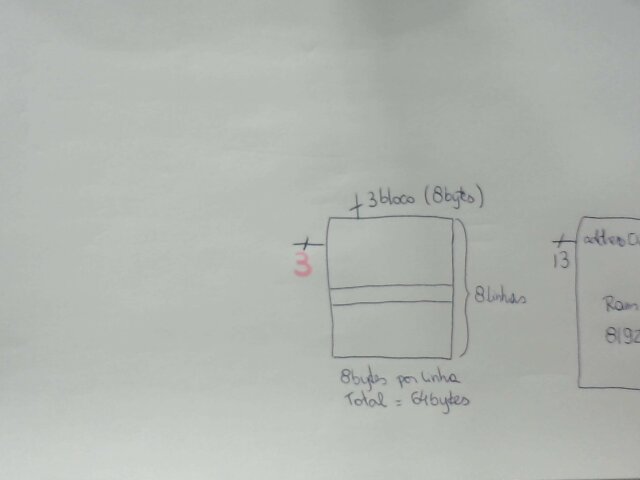 3 bloco (8bytes)
3
8 linhas
8bytes por linha
Total = 64bytes
13
Ram
8192